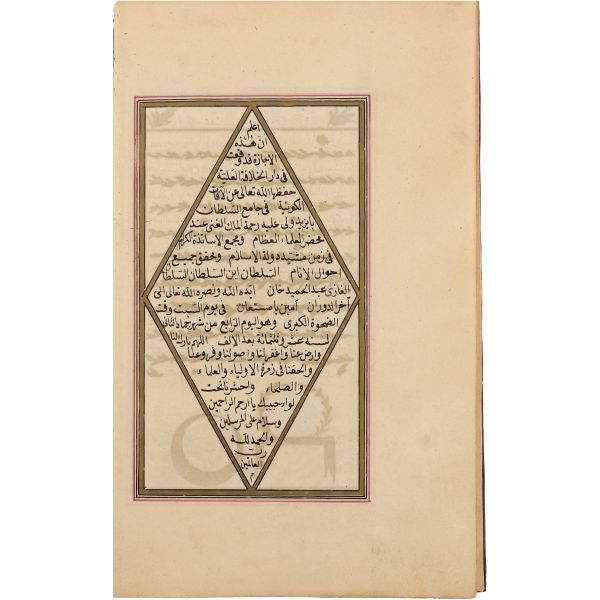 اعلم
ان هذه
الاجازة قد وقعت
فى دار الخلافة العلية
حفظها الله تعالى عن الآفات
الكونية فى جامع السلطان
بايزيد ولى عليه رحمة الملك الغنى عند
محضر العلماء العظام ومجمع الاساتذة الكرام
فى زمن مشيد دولة الاسلام ومحقق جميع
احوال الانام السلطان ابن السلطان السلطان
الغازى عبد الحميد خان ايده الله ونصره الله تعالى الى
آخر الدوران آمين يا مستعان فى يوم السبت وقت
الضحوة الكبرى وهو اليوم الرابع من شهر جمادى الثانى
لسنه عشر وثلثمائة بعد الالف اللهم بارك لنا
وارض عنا واغفر لنا واصولنا وفروعنا
والحقنا فى زمرة الاولياء والعلماء
والصلحاء واحشرنا تحت
لواء حبيبك يا ارحم الراحمين
وسلام على المرسلين
والحمد لله
رب
العالمين
م